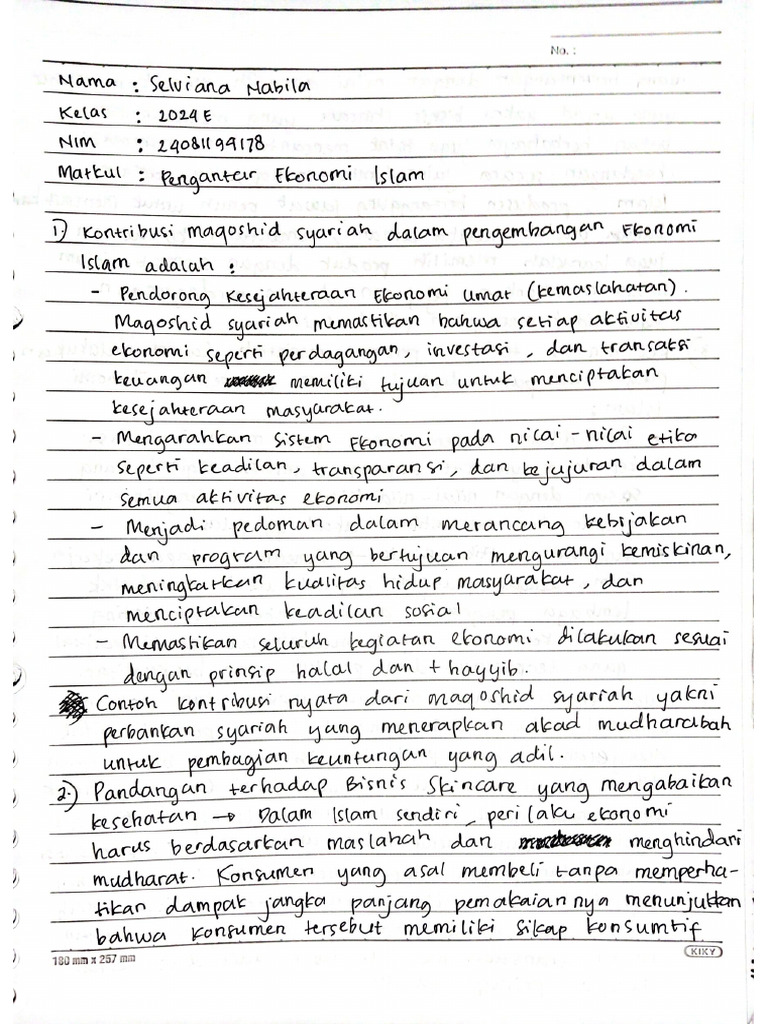 No. :
Nama : Selviana Nabila
Kelas : 2024 E
NIM : 24081199178
Matkul : Pengantar Ekonomi Islam
1.) Kontribusi maqoshid syariah dalam pengembangan Ekonomi
Islam adalah :
- Pendorong kesejahteraan Ekonomi umat (kemaslahatan).
Maqoshid syariah memastikan bahwa setiap aktivitas
ekonomi seperti perdagangan, investasi, dan transaksi
keuangan memiliki tujuan untuk menciptakan
kesejahteraan masyarakat.
- Mengarahkan sistem Ekonomi pada nilai-nilai etika
seperti keadilan, transparansi, dan kejujuran dalam
semua aktivitas ekonomi
- Menjadi pedoman dalam merancang kebijakan
dan program yang bertujuan mengurangi kemiskinan,
meningkatkan kualitas hidup masyarakat, dan
menciptakan keadilan sosial
- Memastikan seluruh kegiatan ekonomi dilakukan sesuai
dengan prinsip halal dan thayyib.
Contoh kontribusi nyata dari maqoshid syariah yakni
perbankan syariah yang menerapkan akad mudharabah
untuk pembagian keuntungan yang adil.
2.) Pandangan terhadap Bisnis Skincare yang mengabaikan
kesehatan → Dalam Islam sendiri, perilaku ekonomi
harus berdasarkan maslahah dan menghindari
mudharat. Konsumen yang asal membeli tanpa memperha-
tikan dampak jangka panjang pemakaiannya menunjukkan
bahwa konsumen tersebut memiliki sikap konsumtif
180 mm x 257 mm
KIKY